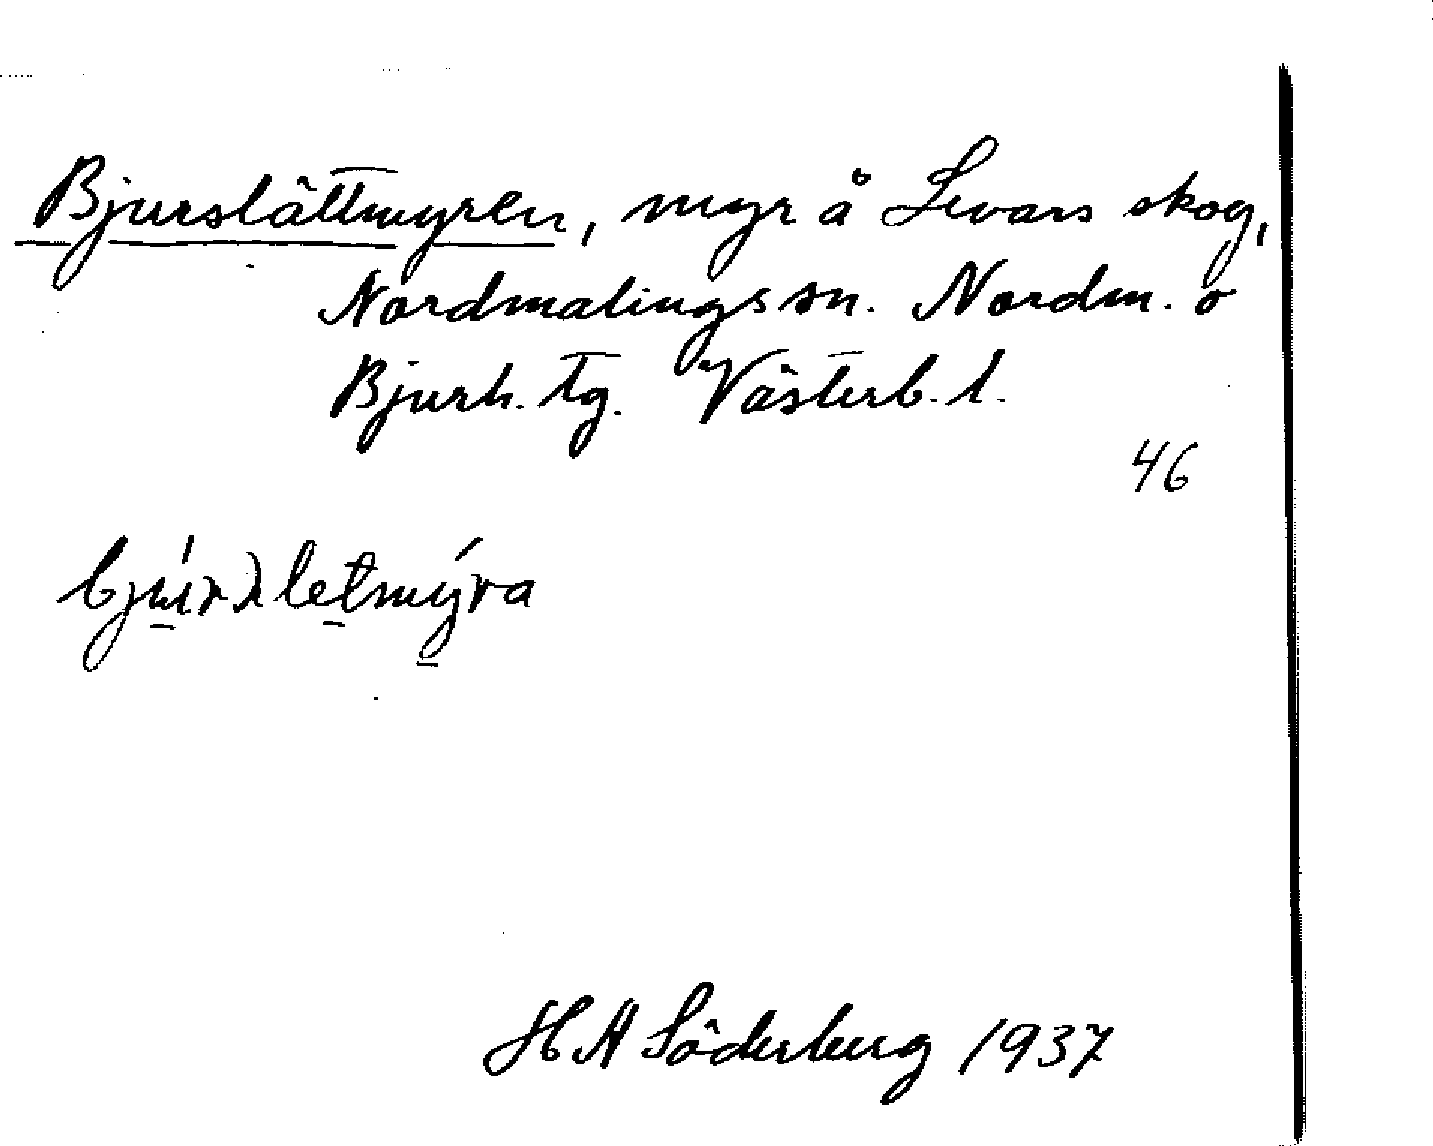 Bjurslättmyren, myr å Levars skog,
Nordmalings sn. Nordm. o
Bjurh. tg. Västerb. l.
46
H A Söderberg 1937